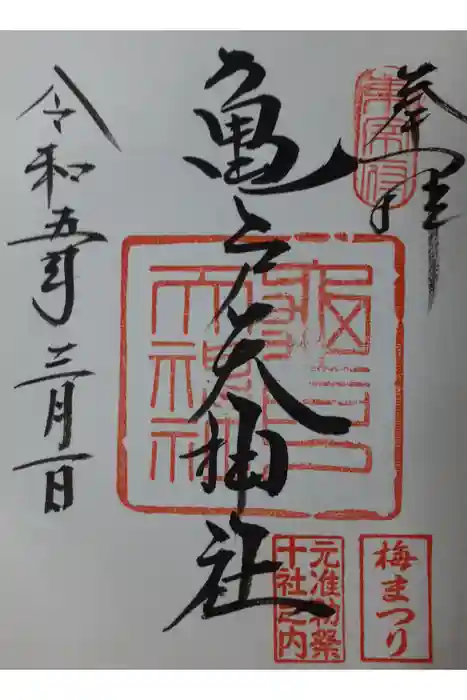 奉拝
東宰府
亀戸天神社
令和五年三月一日
元准勅祭
十社之内
梅まつり